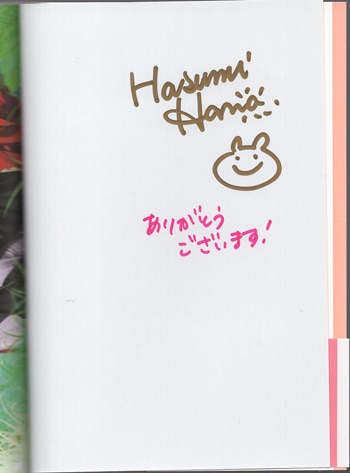 Hasumi
Hana
ありがとう
ございます!